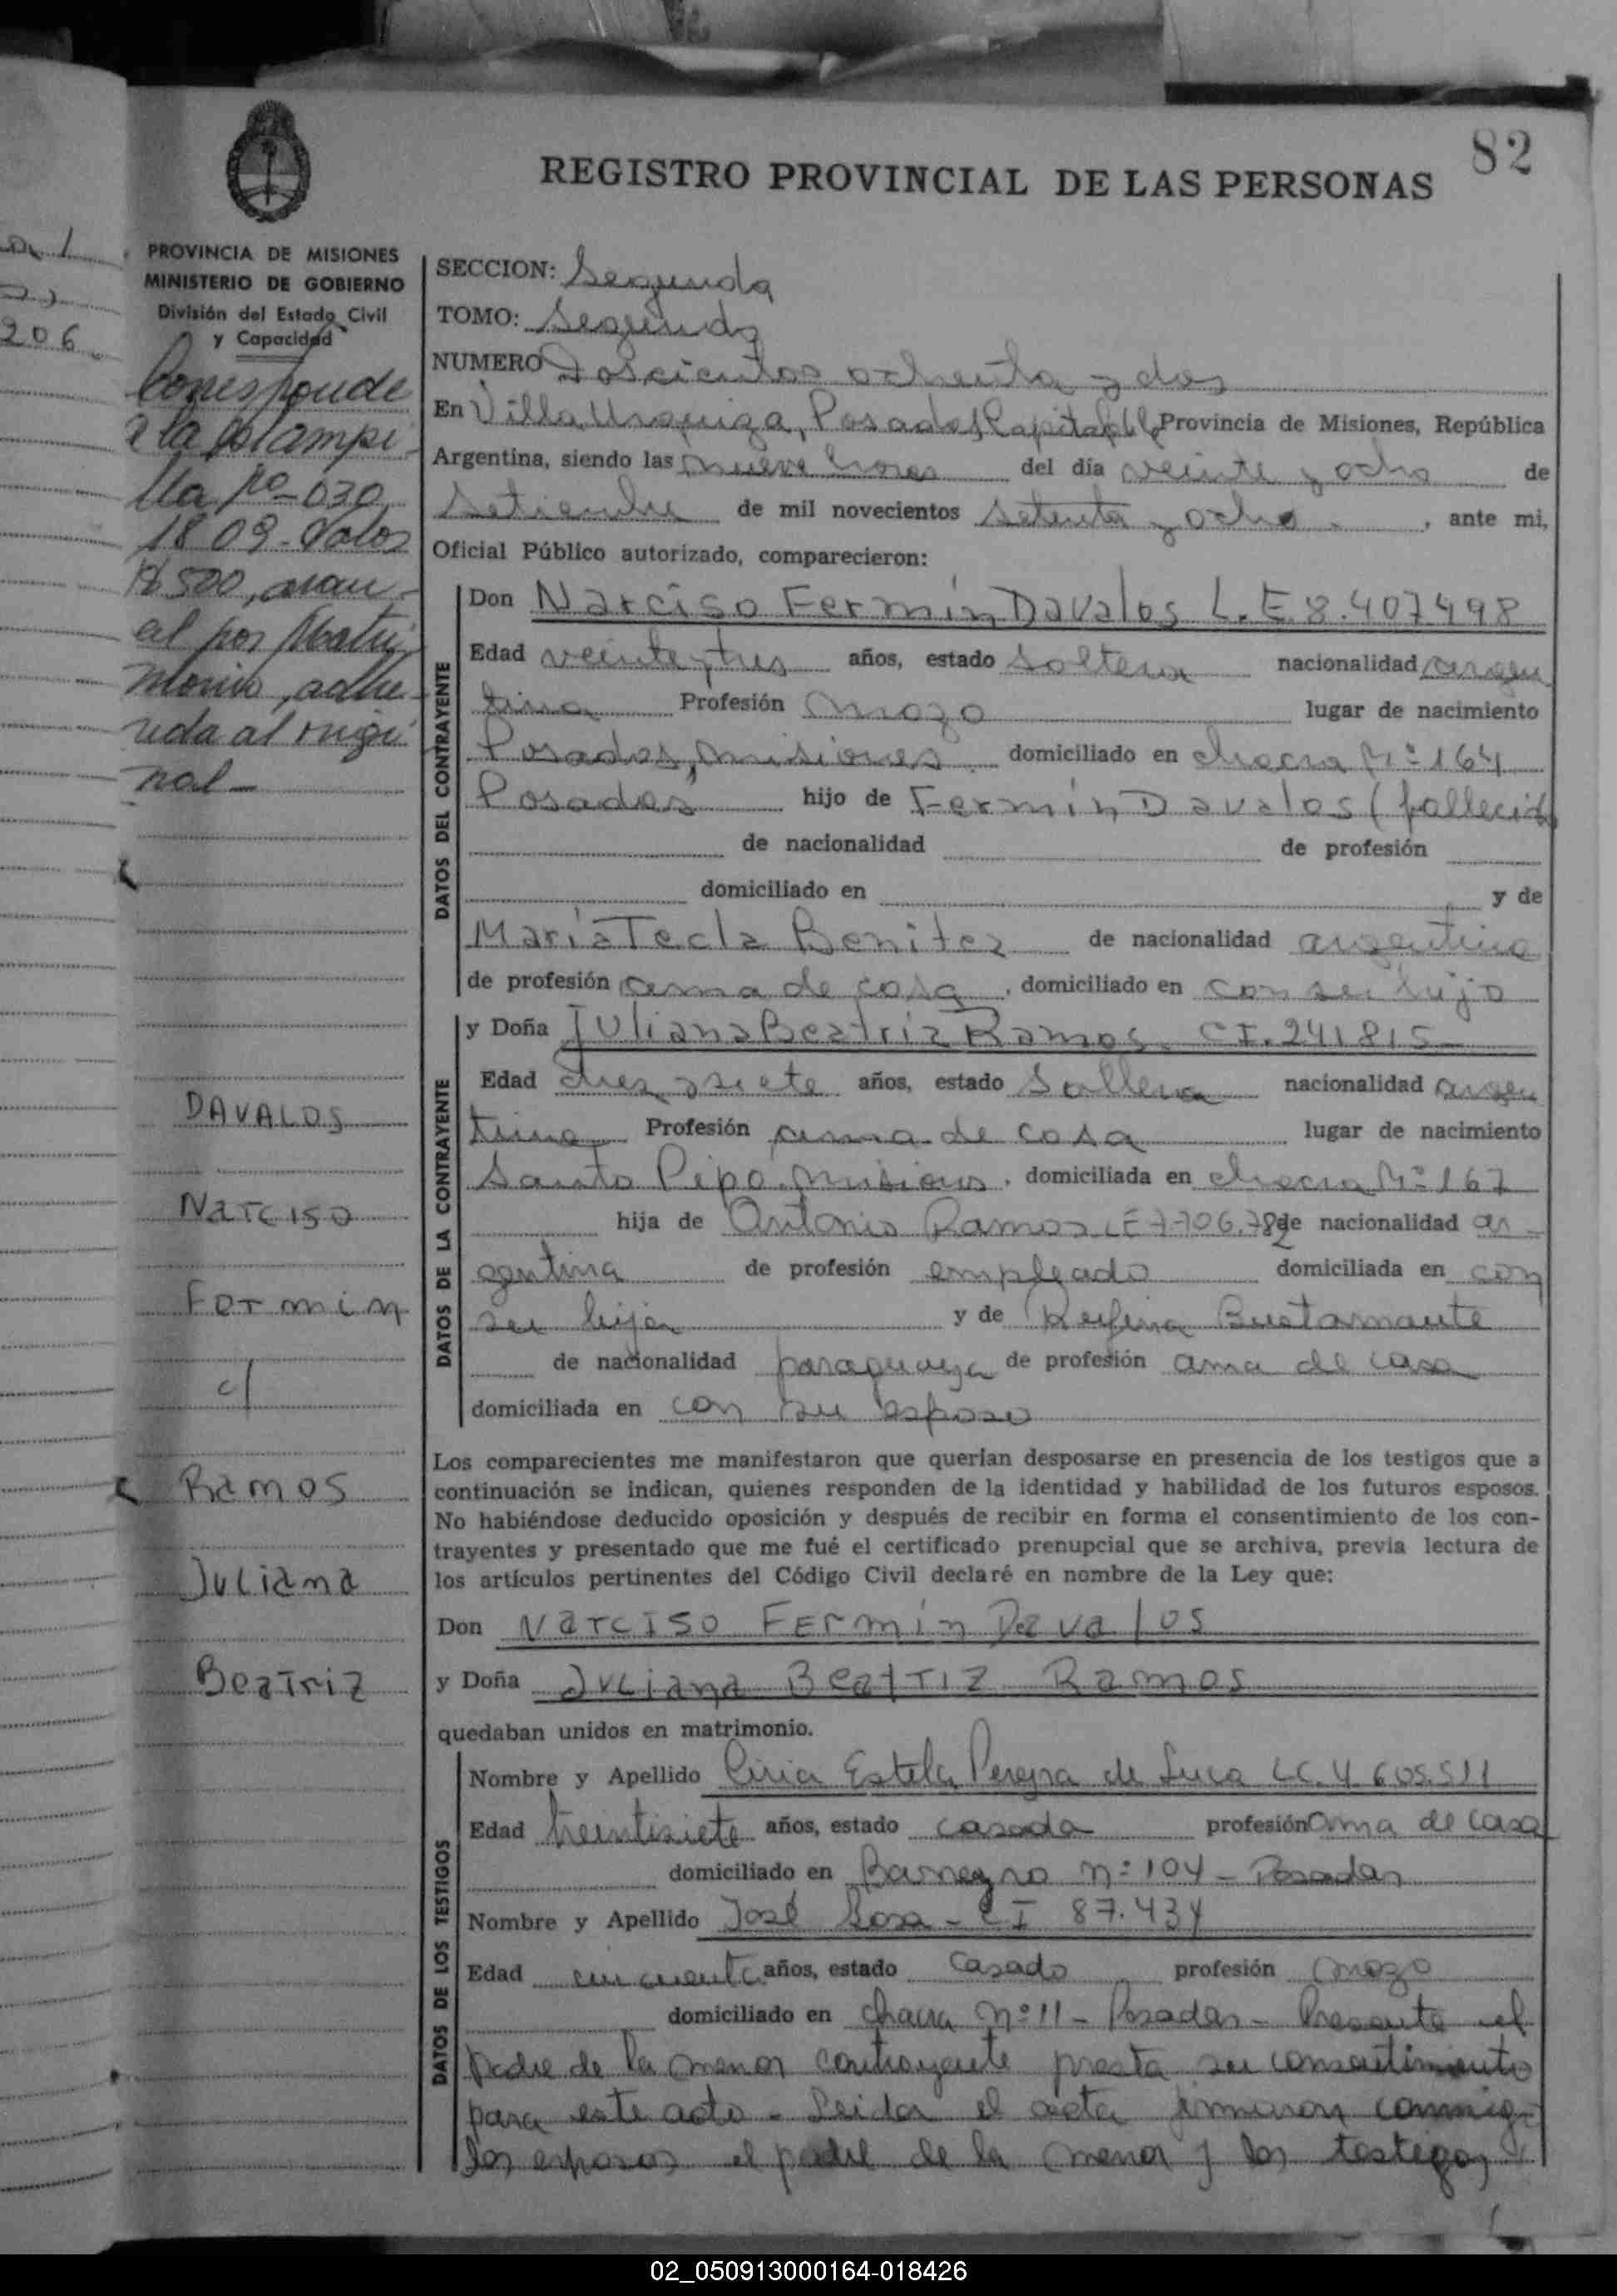 82
REGISTRO PROVINCIAL DE LAS PERSONAS
206
PROVINCIA DE MISIONES
MINISTERIO DE GOBIERNO
División del Estado Civil
y Capacidad
Corresponde
a la estampi
lla No-030
1809-Valor
$500, aran-
cel por Matri
monio, adhe-
rida al origi
nal-
DAVALOS
Narciso
Fermin
c/
Ramos
Juliana
Beatriz
SECCION: Segunda
TOMO: Segundo
NUMERO Doscientos ochenta y dos
En Villa Urquiza, Posadas, Capital de la Provincia de Misiones, República
Argentina, siendo las nueve horas del día veinte y ocho de
Setiembre de mil novecientos setenta y ocho. , ante mi,
Oficial Público autorizado, comparecieron:
DATOS DEL CONTRAYENTE
Don Narciso Fermín Davalos L.E.8.407498
Edad veinte y tres años, estado soltero nacionalidad argen
tina Profesión mozo lugar de nacimiento
Posadas, misiones domiciliado en chacra N:164
Posadas hijo de Fermín Davalos (fallecido
de nacionalidad de profesión
domiciliado en y de
María Tecla Benitez de nacionalidad argentina
de profesión ama de casa , domiciliado en con su hijo
DATOS DE LA CONTRAYENTE
y Doña Juliana Beatriz Ramos. CI.241815-
Edad diez y siete años, estado soltera nacionalidad argen
tina Profesión ama de casa lugar de nacimiento
Santo Pipo. misiones. domiciliada en chacra N:167
hija de Antonio Ramos LE 7.706.782 de nacionalidad ar-
gentina de profesión empleado domiciliada en con
su hija y de Reifina Bustamante
de nacionalidad paraguaya de profesión ama de casa
domiciliada en con su esposo
Los comparecientes me manifestaron que querían desposarse en presencia de los testigos que a
continuación se indican, quienes responden de la identidad y habilidad de los futuros esposos.
No habiéndose deducido oposición y después de recibir en forma el consentimiento de los con-
trayentes y presentado que me fué el certificado prenupcial que se archiva, previa lectura de
los artículos pertinentes del Código Civil declaré en nombre de la Ley que:
Don Narciso Fermín Davalos
y Doña Juliana Beatriz Ramos
quedaban unidos en matrimonio.
DATOS DE LOS TESTIGOS
Nombre y Apellido Estela Pereyra de Luca LC.4.605.511
Edad treintisiete años, estado casada profesión ama de casa
domiciliado en n:104- Posadas
Nombre y Apellido José Sosa - CI 87.434
Edad cincuenta años, estado casado profesión mozo
domiciliado en chacra n:11- Posadas- Presente el
padre de la menor contrayente presta su consentimiento
para este acto - Leida el acta firmaron conmigo
los esposos el padre de la menor y los testigos
02_050913000164-018426